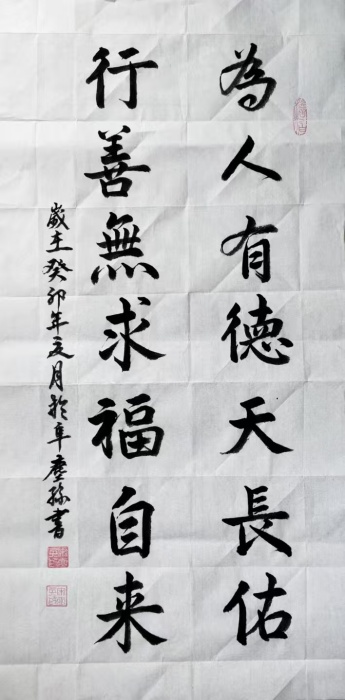 為人有德天長佑
行善無求福自来
歲在癸卯年夏月於阜塵孫書